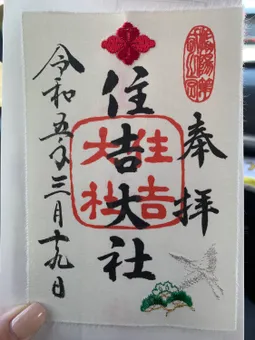 奉拝
住吉大社
住吉大社
令和五年三月十九日